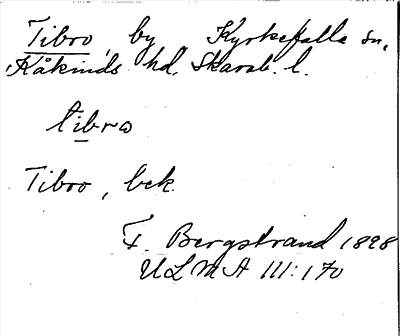 Tibro, by Kyrkefalla sn,
Kåkinds hd, Skarab. l.
tibro
Tibro, bek.
F. Bergstrand 1898
ULMA 111:170